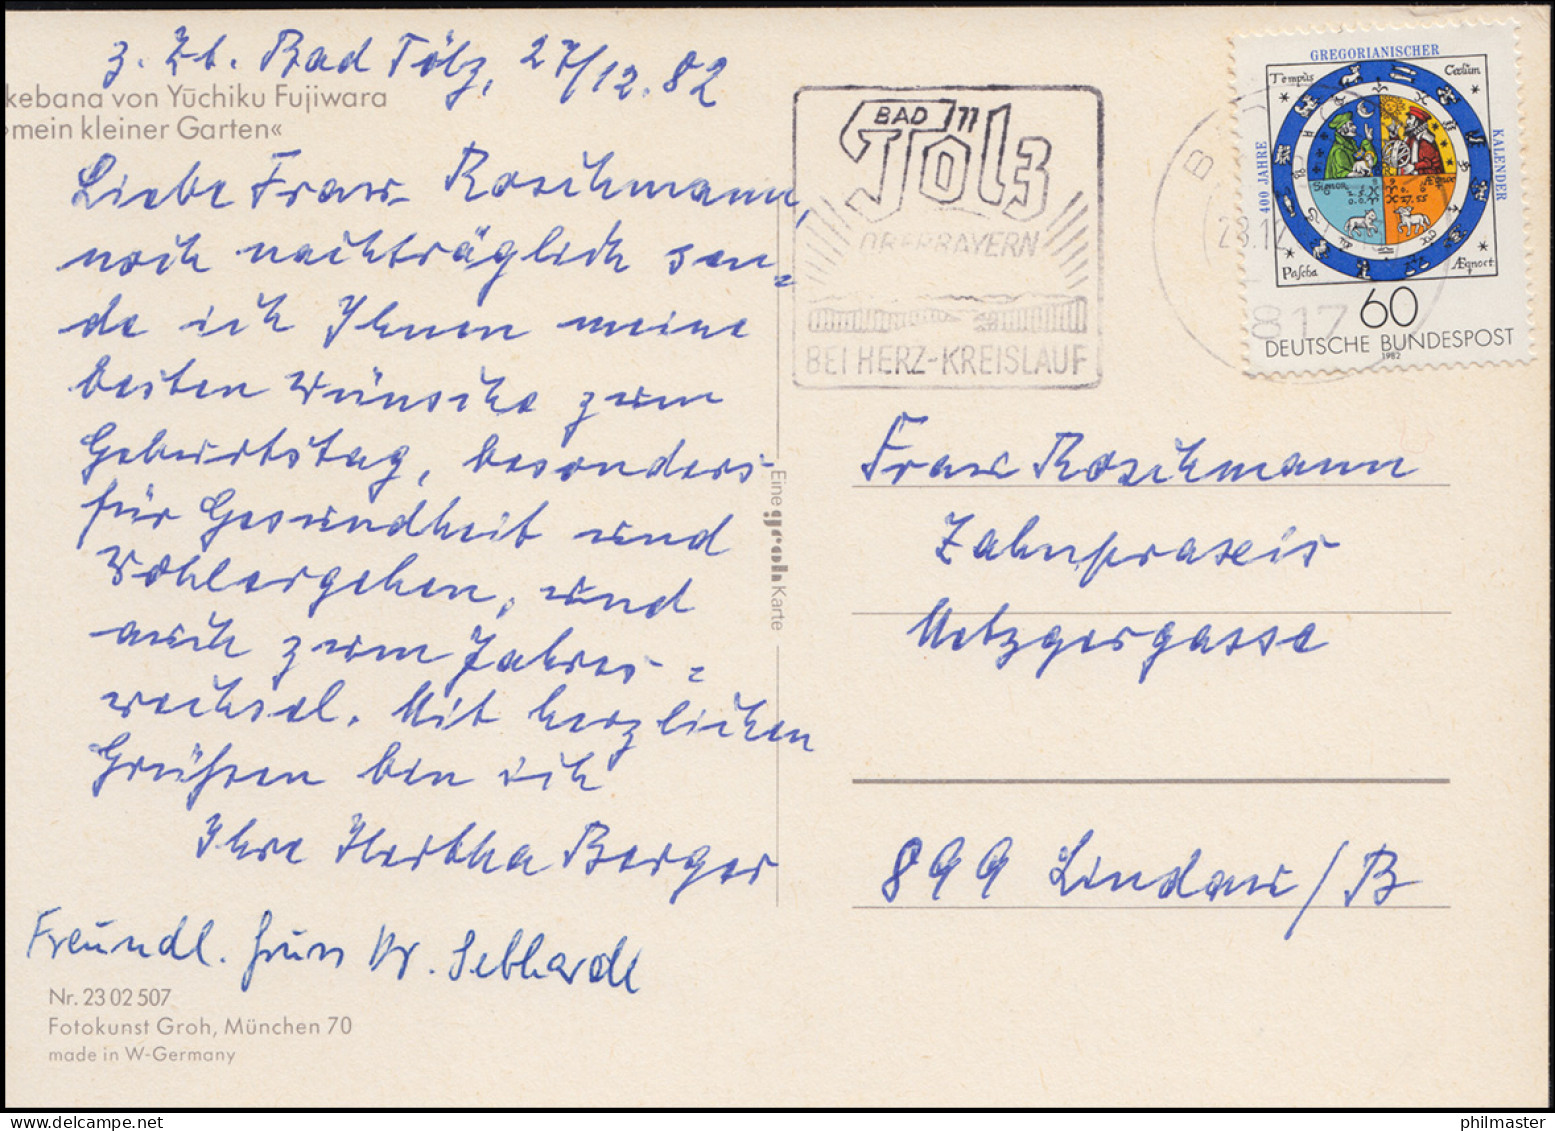 z. Zt. Bad Tölz, 27/12.82
kebana von Yūchiku Fujiwara
»mein kleiner Garten«
Liebe Frau Roschmann,
noch nachträglich sen-
de ich Ihnen meine
besten Wünsche zum
Geburtstag, besonders
für Gesundheit und
Wohlergehen, und
auch zum Jahres-
wechsel. Mit herzlichen
Grüßen bin ich
Ihre Hertha Berger
Freundl. Gruss
Nr. 23 02 507
Fotokunst Groh, München 70
made in W-Germany
Eine groh Karte
BAD TÖLZ
OBERBAYERN
BEI HERZ-KREISLAUF
28.12
817
GREGORIANISCHER
KALENDER
400 JAHRE
Tempus
Cœlum
Signor
Pascha
Æqnoct
60
DEUTSCHE BUNDESPOST
1982
Frau Roschmann
Zahnpraxis
Metzgergasse
899 Lindau/B
philmaster